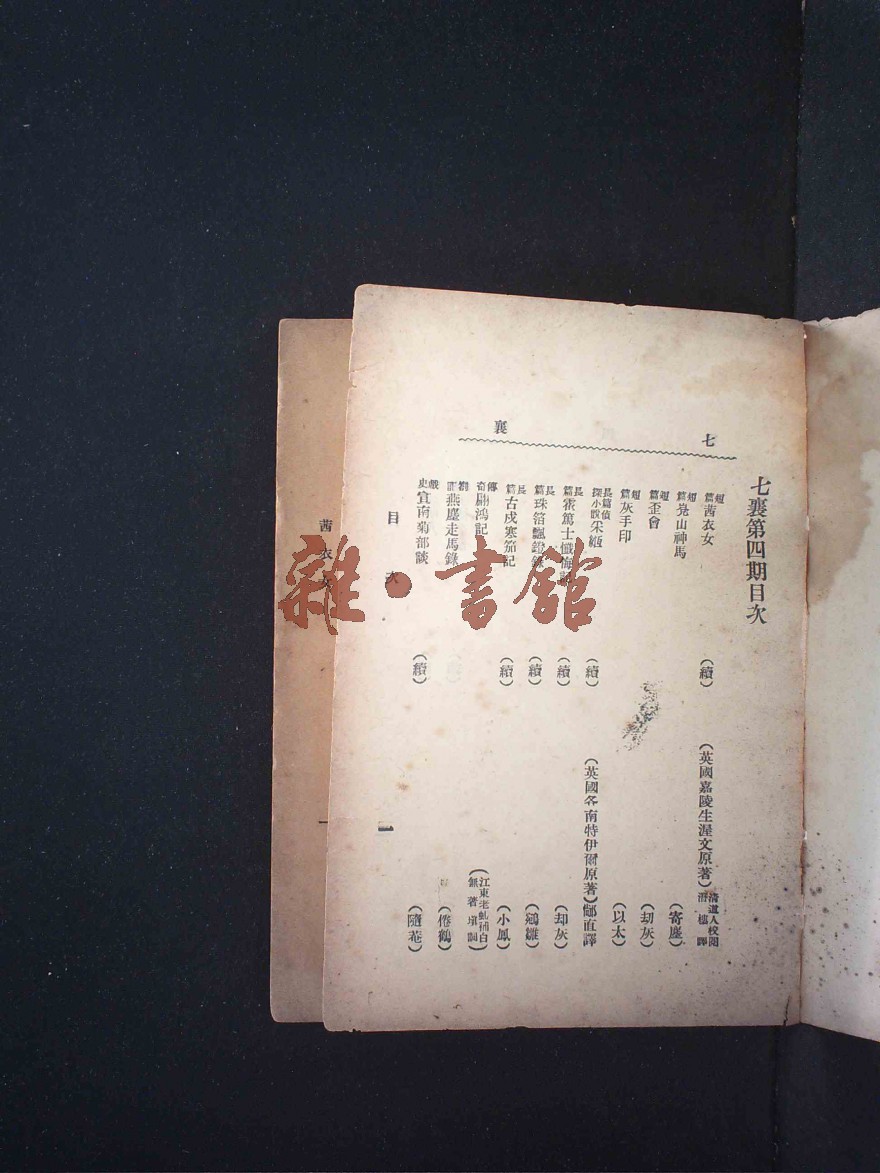 七襄
七襄第四期目次
短篇茜衣女（續）（英國嘉陵生渥文原著）清道人校閱
短篇嵬山神馬（寄塵）
短篇歪會（刧灰）
短篇灰手印（以太）
長篇偵探小說朱絙（續）（英國各南特伊爾原著）鄺直譯
長篇霍篤士懺悔（續）（却灰）
長篇珠箔飄鐙錄（續）（鵷雛）
長篇古戍寒笳記（續）（小鳳）
傳奇鴻記（江東老虬補白 無著填詞）
燕塵走馬錄（倦鶴）
戲史宣南菊部談（續）（隨菴）
目次
一
茜衣女
一
雜·書館